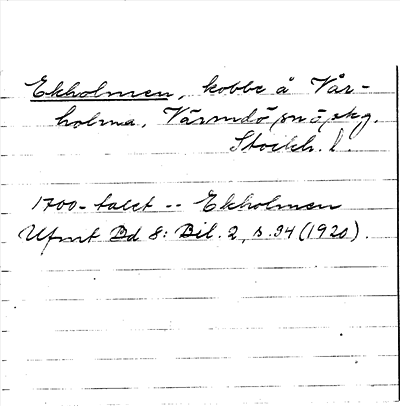 Ekholmen, kobbe å Vår-
holma, Värmdö sn ö, skg.
Stockh. l.
1700-talet -- Ekholmen
Ufmt Bd 8: Bil. 2, s. 94 (1920).